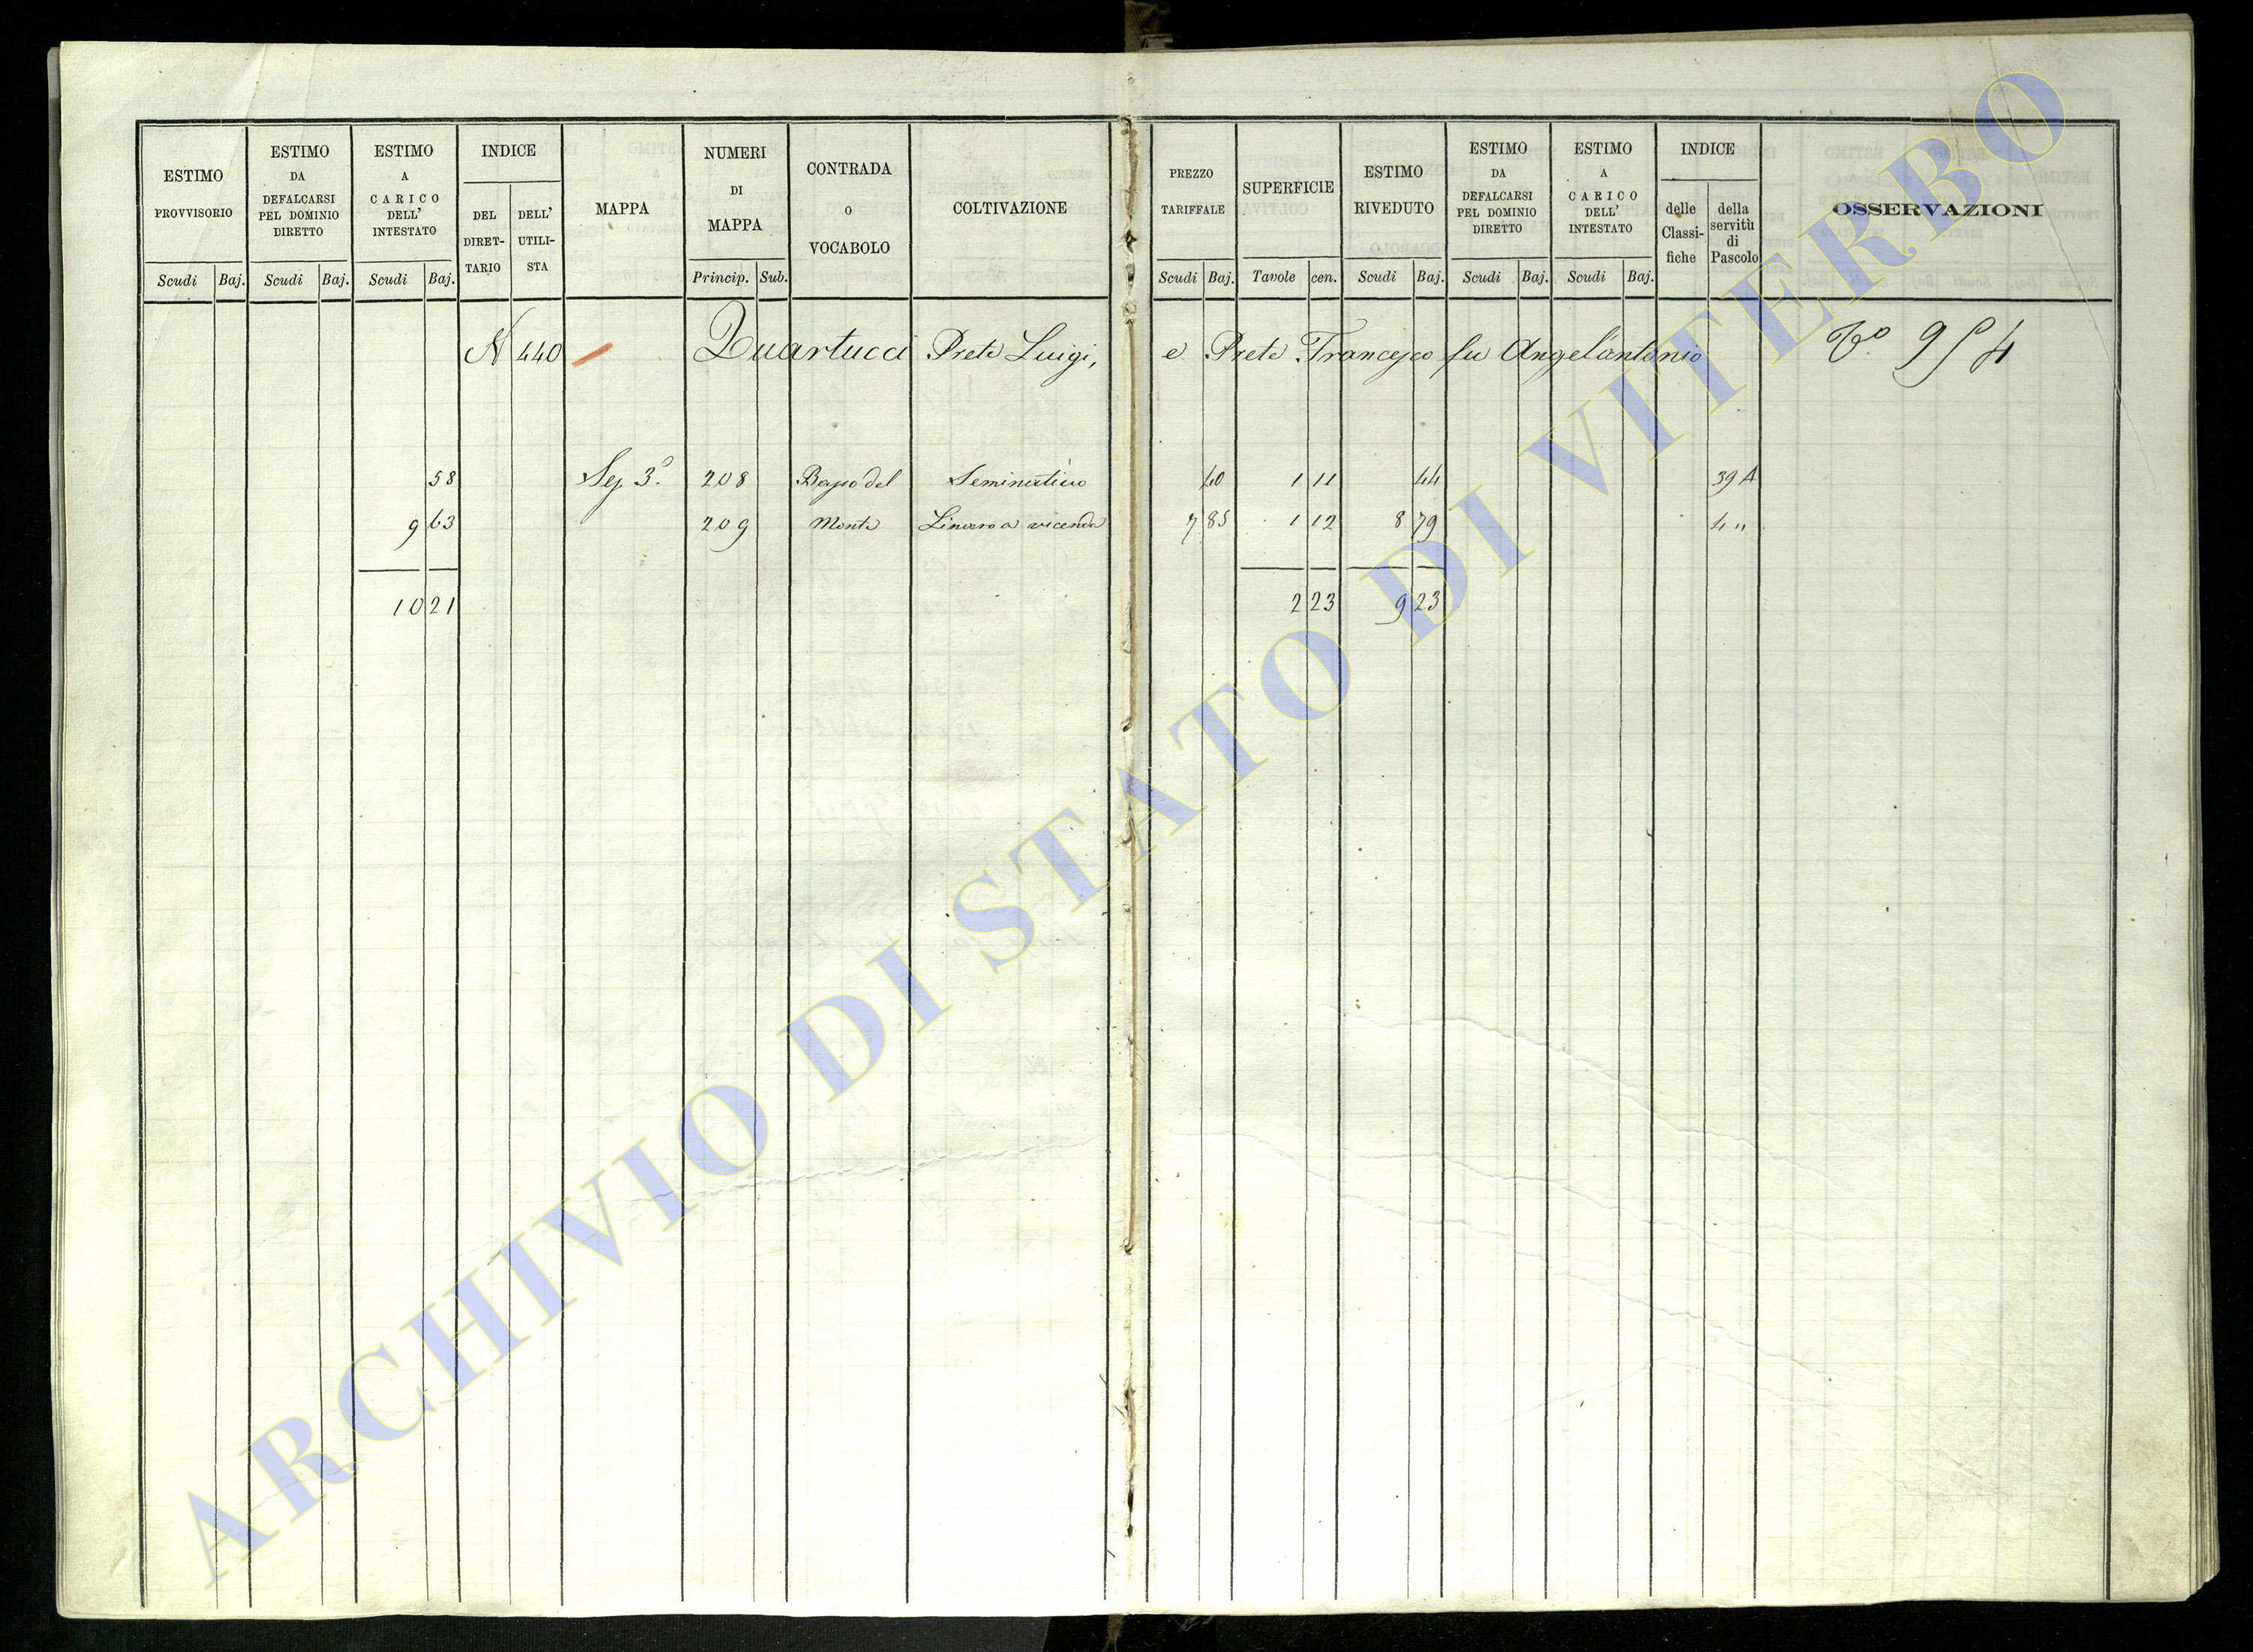 ESTIMO PROVVISORIO
Scudi Baj.
ESTIMO DA DEFALCARSI PEL DOMINIO DIRETTO
Scudi Baj.
ESTIMO A CARICO DELL' INTESTATO
Scudi Baj.
INDICE
DEL DIRET-TARIO
DELL' UTILI-STA
MAPPA
NUMERI DI MAPPA
Princip. Sub.
CONTRADA O VOCABOLO
COLTIVAZIONE
PREZZO TARIFFALE
Scudi Baj.
SUPERFICIE
Tavole cen.
ESTIMO RIVEDUTO
Scudi Baj.
ESTIMO DA DEFALCARSI PEL DOMINIO DIRETTO
Scudi Baj.
ESTIMO A CARICO DELL' INTESTATO
Scudi Baj.
INDICE
delle Classi-fiche
della servitù di Pascolo
OSSERVAZIONI
N 440 Quartucci Prete Luigi, e Prete Francesco fu Angelantonio 954
58 Sez 3ª 208 Basso del Seminativo 40 1 11 44 39 A
9 63 209 Monte a vicenda 7 85 1 12 8 79 4 "
10 21 2 23 9 23
ARCHIVIO DI STATO DI VITERBO